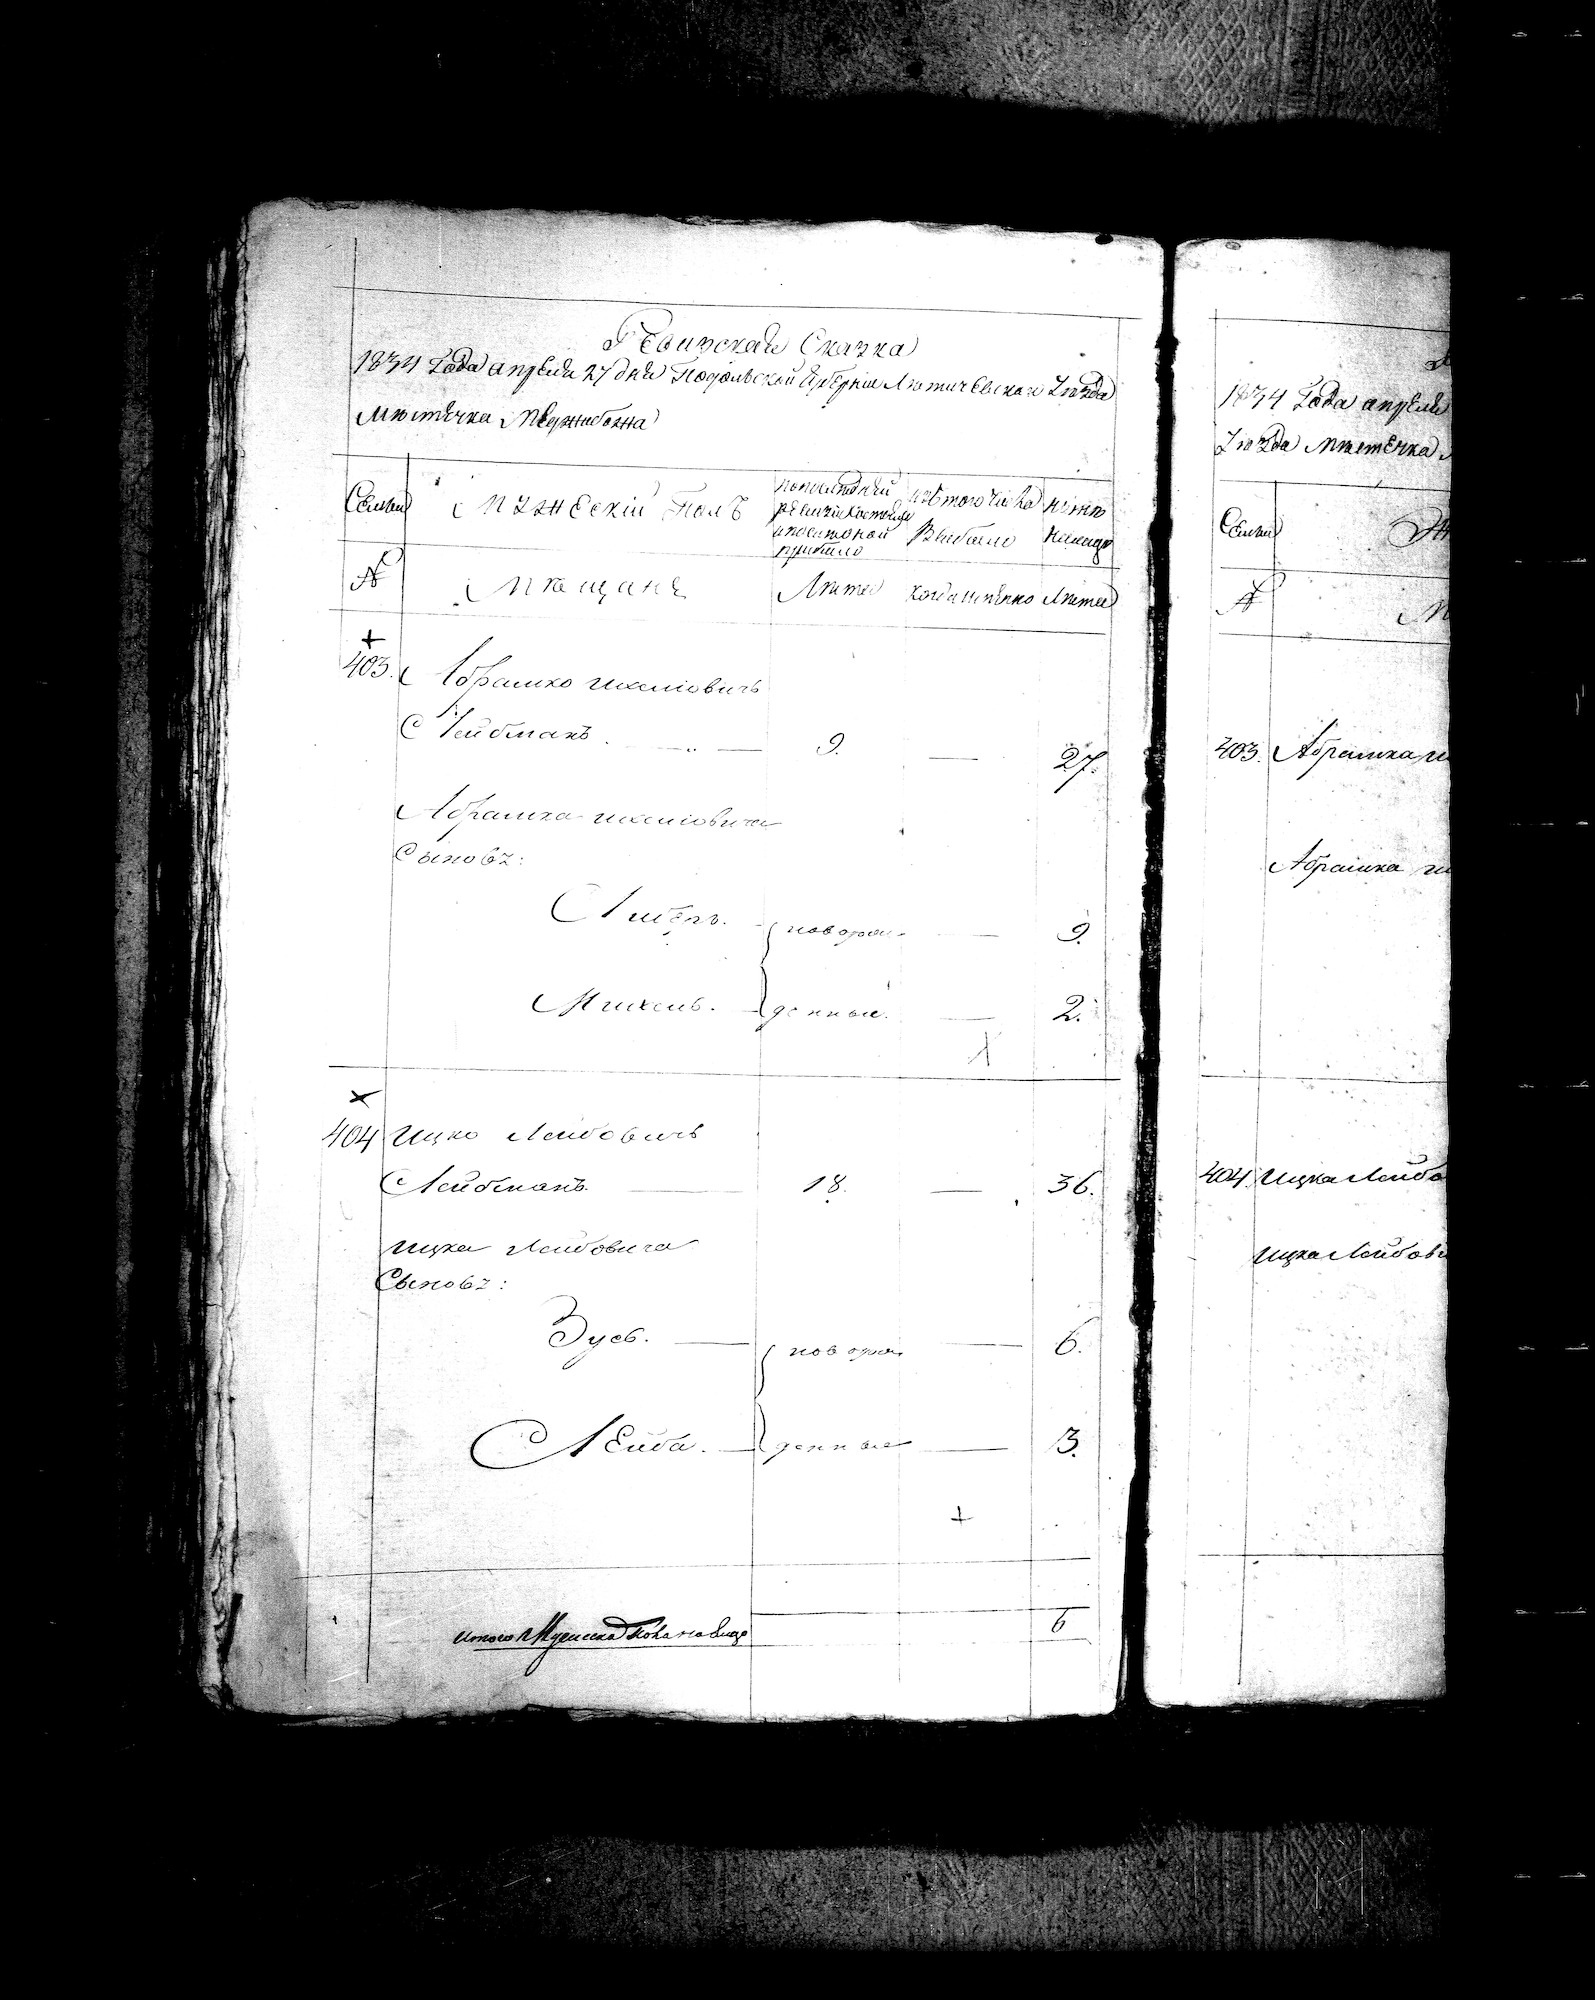 Ревизская Сказка
1834 Года апреля 27 дня Подольской Губернии Летичевскаго Уезда
Местечка Меджибожа
Семьи
Мужескій Полъ
по последней ревизіи состояло и после оной прибыло
изъ того числа Выбыло
ныне на лицо
№
Мещане
Лета
когда имянно
Лета
403. Абрамко
Лейбманъ. — „ — 9. — 27.
Абрамка
Сыновъ:
новорож — 9.
денные. — 2.
404 Ицко Лейбовичъ
Лейбманъ. — 18. — 36.
Ицка Лейбовича
Сыновъ:
Зусь. — новорож — 6.
Лейба. — денные — 3.
итого Мужеска Пола на лицо 6
1834 Года апреля
Уезда Местечка
Семьи
№
403. Абрамка
Абрамка
404 Ицка Лейбо
Ицка Лейбови